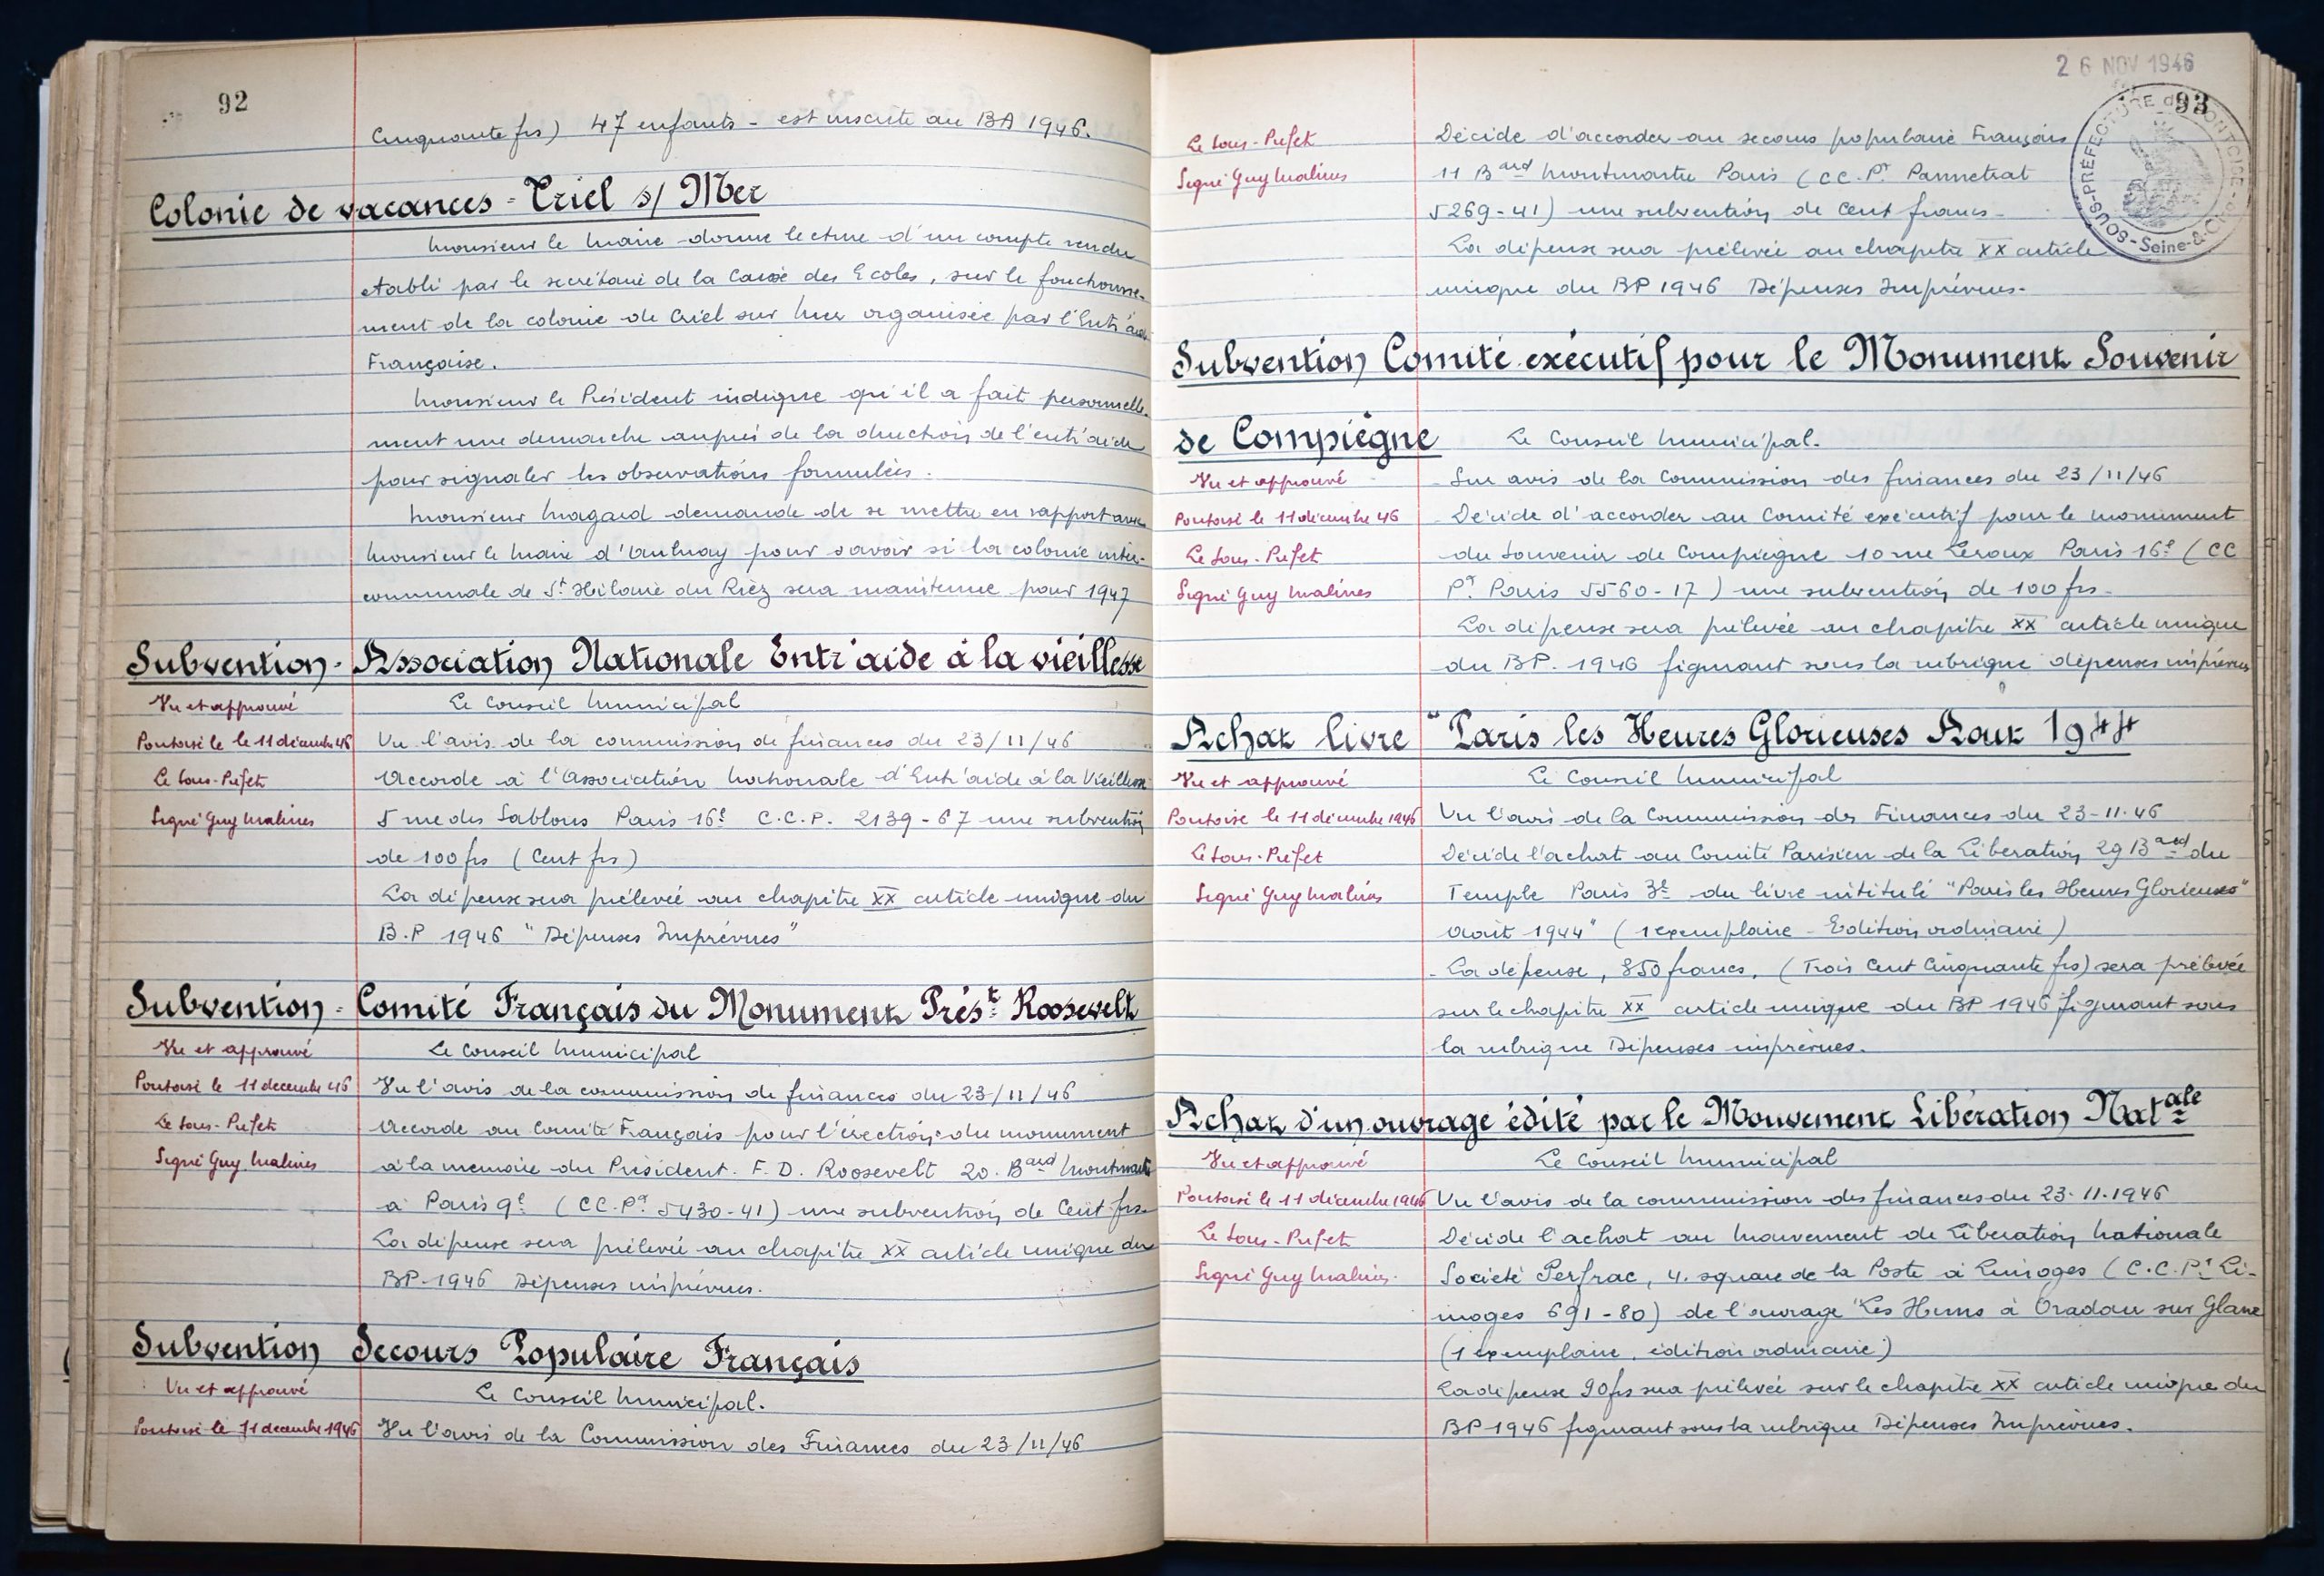 92
Cinquante frs) 47 enfants - est inscrite au BA 1946.
Colonie de vacances - Criel s/ Mer
Monsieur le Maire donne lecture d'un compte rendu
etabli par le secrétaire de la Caisse des Ecoles, sur le
ment de la colonie de Criel sur Mer organisée par l'Entr'aide
Française.
Monsieur le Président indique qu'il a fait personnelle-
ment une demarche auprès de la direction de l'entr'aide
pour signaler les observations formulées.
Monsieur Magard demande de se mettre en rapport avec
Monsieur le Maire d'Aulnay pour savoir si la colonie inter-
communale de St Hilaire du Riez sera maintenue pour 1947
Subvention - Association Nationale Entr'aide à la vieillesse
Vu et approuvé
Le Conseil Municipal
Pontoise le le 11 décembre 46
Vu l'avis de la commission de finances du 23/11/46
Le Sous-Préfet
Accorde à l'Association Nationale d'Entr'aide à la Vieillesse
Signé Guy Malines
5 rue des Sablons Paris 16e C.C.P. 2139-67 une subvention
de 100 frs (Cent frs)
La dépense sera prélevée au chapitre XX article unique du
B.P 1946 "Dépenses Imprévues"
Subvention - Comité Français du Monument Prést Roosevelt
Vu et approuvé
Le Conseil Municipal
Pontoise le 11 decembre 46
Vu l'avis de la commission de finances du 23/11/46
Le Sous-Préfet
Accorde au Comité Français pour l'érection du monument
Signé Guy Malines
à la memoire du Président F. D. Roosevelt 20. Bard Montmartre
à Paris 9e (CC.Pt 5430-41) une subvention de Cent frs.
La dépense sera prélevée au chapitre XX article unique du
BP-1946 Dépenses imprévues.
Subvention Secours Populaire Français
Vu et approuvé
Le Conseil Municipal.
Pontoise le 11 decembre 1946
Vu l'avis de la Commission des Finances du 23/11/46
26 NOV 1946
93
SOUS-PRÉFECTURE de PONTOISE - Seine-&-Oise
Le Sous-Préfet
Décide d'accorder au secours populaire Français
Signé Guy Malines
11 Bard Montmartre Paris (CC.Pt Pannetrat
5269-41) une subvention de Cent francs-
La dépense sera prélevée au chapitre XX article
unique du BP 1946 Dépenses Imprévues-
Subvention Comité exécutif pour le Monument Souvenir
de Compiègne
Le Conseil Municipal.
Vu et approuvé
Sur avis de la Commission des finances du 23/11/46
Pontoise le 11 décembre 46
Décide d'accorder au Comité exécutif pour le monument
Le Sous-Préfet
du Souvenir de Compiègne 10 rue Leroux Paris 16e (CC
Signé Guy Malines
Pt Paris 5560-17) une subvention de 100 frs-
La dépense sera prélevée au chapitre XX article unique
du BP. 1946 figurant sous la rubrique dépenses imprévues
Achat livre "Paris les Heures Glorieuses Aout 1944
Vu et approuvé
Le Conseil Municipal
Pontoise le 11 décembre 1946
Vu l'avis de la Commission des Finances du 23-11-46
Le Sous-Préfet
Décide l'achat au Comité Parisien de la Libération 29 Bard du
Signé Guy Malines
Temple Paris 3e du livre intitulé "Paris les Heures Glorieuses"
Août 1944" (1 exemplaire - Edition ordinaire)
- La dépense, 850 francs, (Trois Cent Cinquante frs) sera prélevée
sur le chapitre XX article unique du BP 1946 figurant sous
la rubrique Dépenses imprévues.
Achat d'un ouvrage édité par le Mouvement Libération Natale
Vu et approuvé
Le Conseil Municipal
Pontoise le 11 décembre 1946
Vu l'avis de la commission des finances du 23-11-1946
Le Sous-Préfet
Décide l'achat au Mouvement de Libération Nationale
Signé Guy Malines.
Société Perfrac, 4, square de la Poste à Limoges (C.C.Pt Li-
moges 691-80) de l'ouvrage "Les Huns à Oradour sur Glane
(1 exemplaire, édition ordinaire)
La dépense 90 frs sera prélevée sur le chapitre XX article unique du
BP 1946 figurant sous la rubrique Dépenses Imprévues.